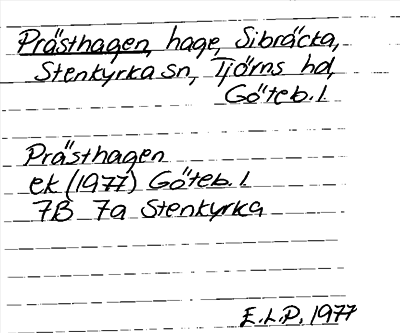 Prästhagen, hage, Sibräcka,
Stenkyrka sn, Tjörns hd,
Göteb. l.
Prästhagen
ek (1977) Göteb. l.
7B 7a Stenkyrka
E.L.P. 1977